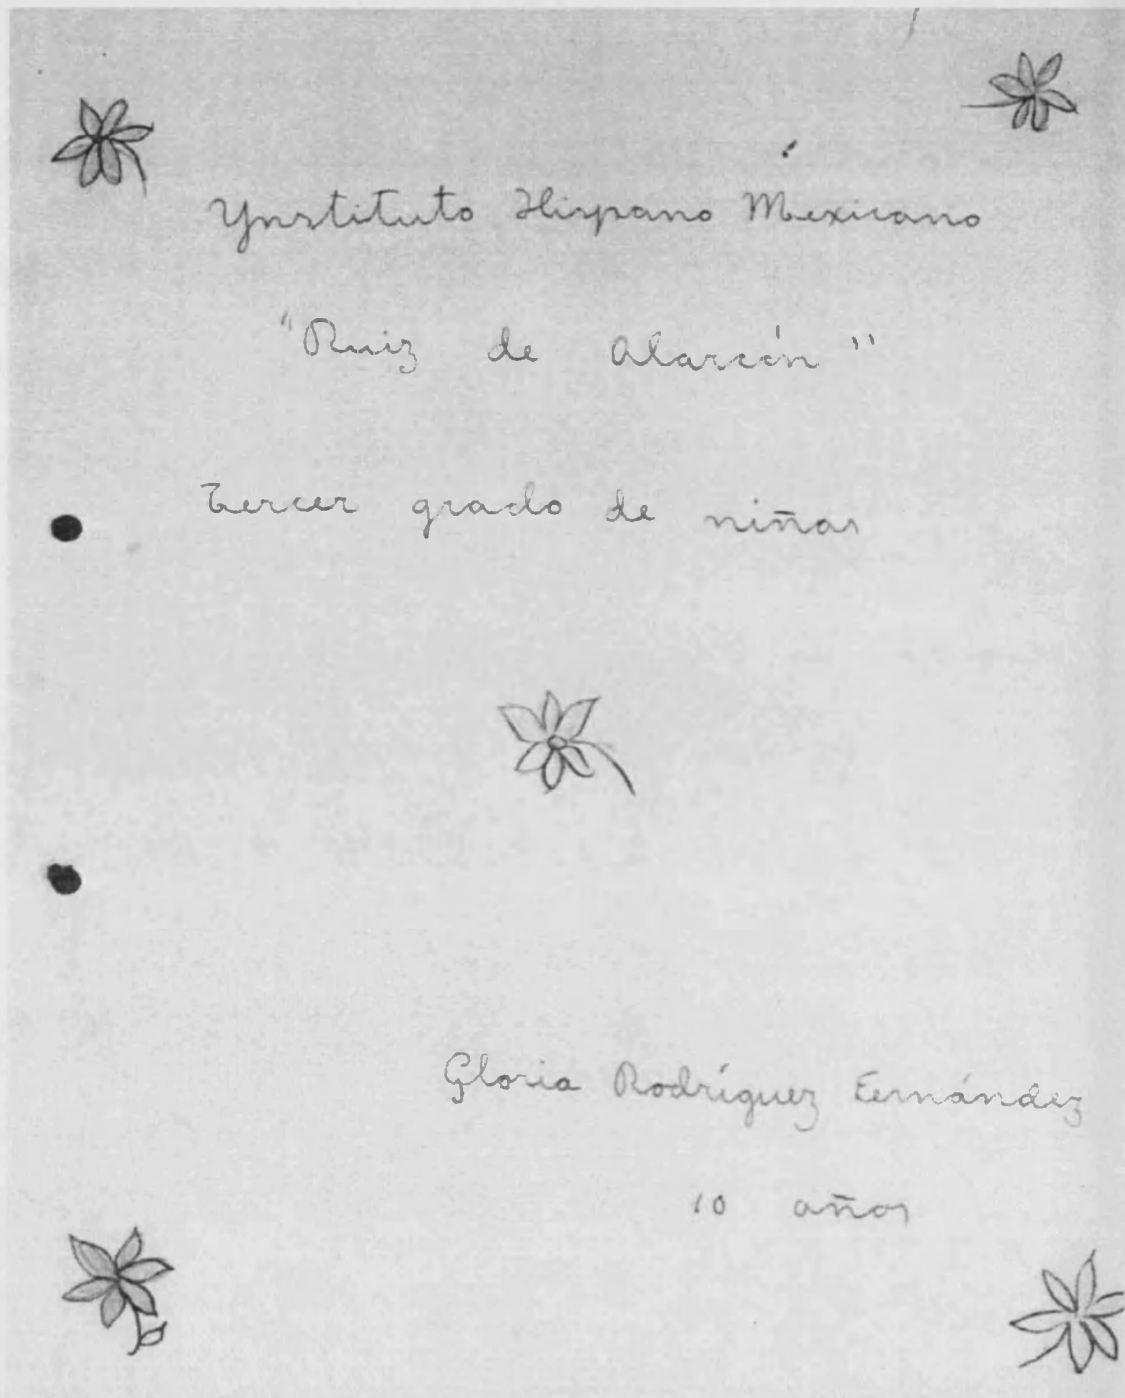 Ynstituto Hispano Mexicano
"Ruiz de Alarcón"
Tercer grado de niñas
Gloria Rodríguez Fernández
10 años